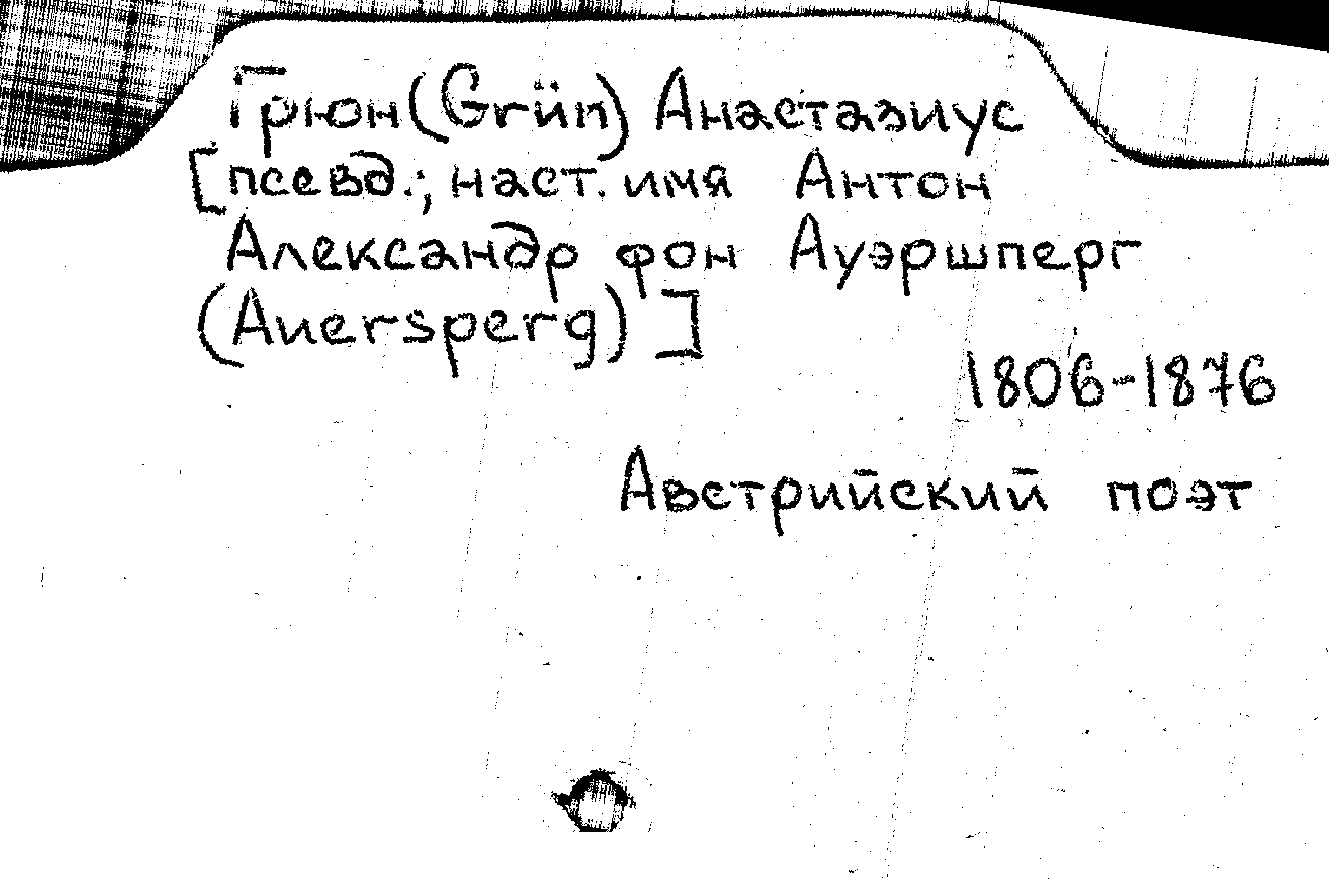 Грюн (Grün) Анастазиус
[псевд.; наст. имя Антон
Александр фон Ауэршперг
(Auersperg)]
1806-1876
Австрийский поэт